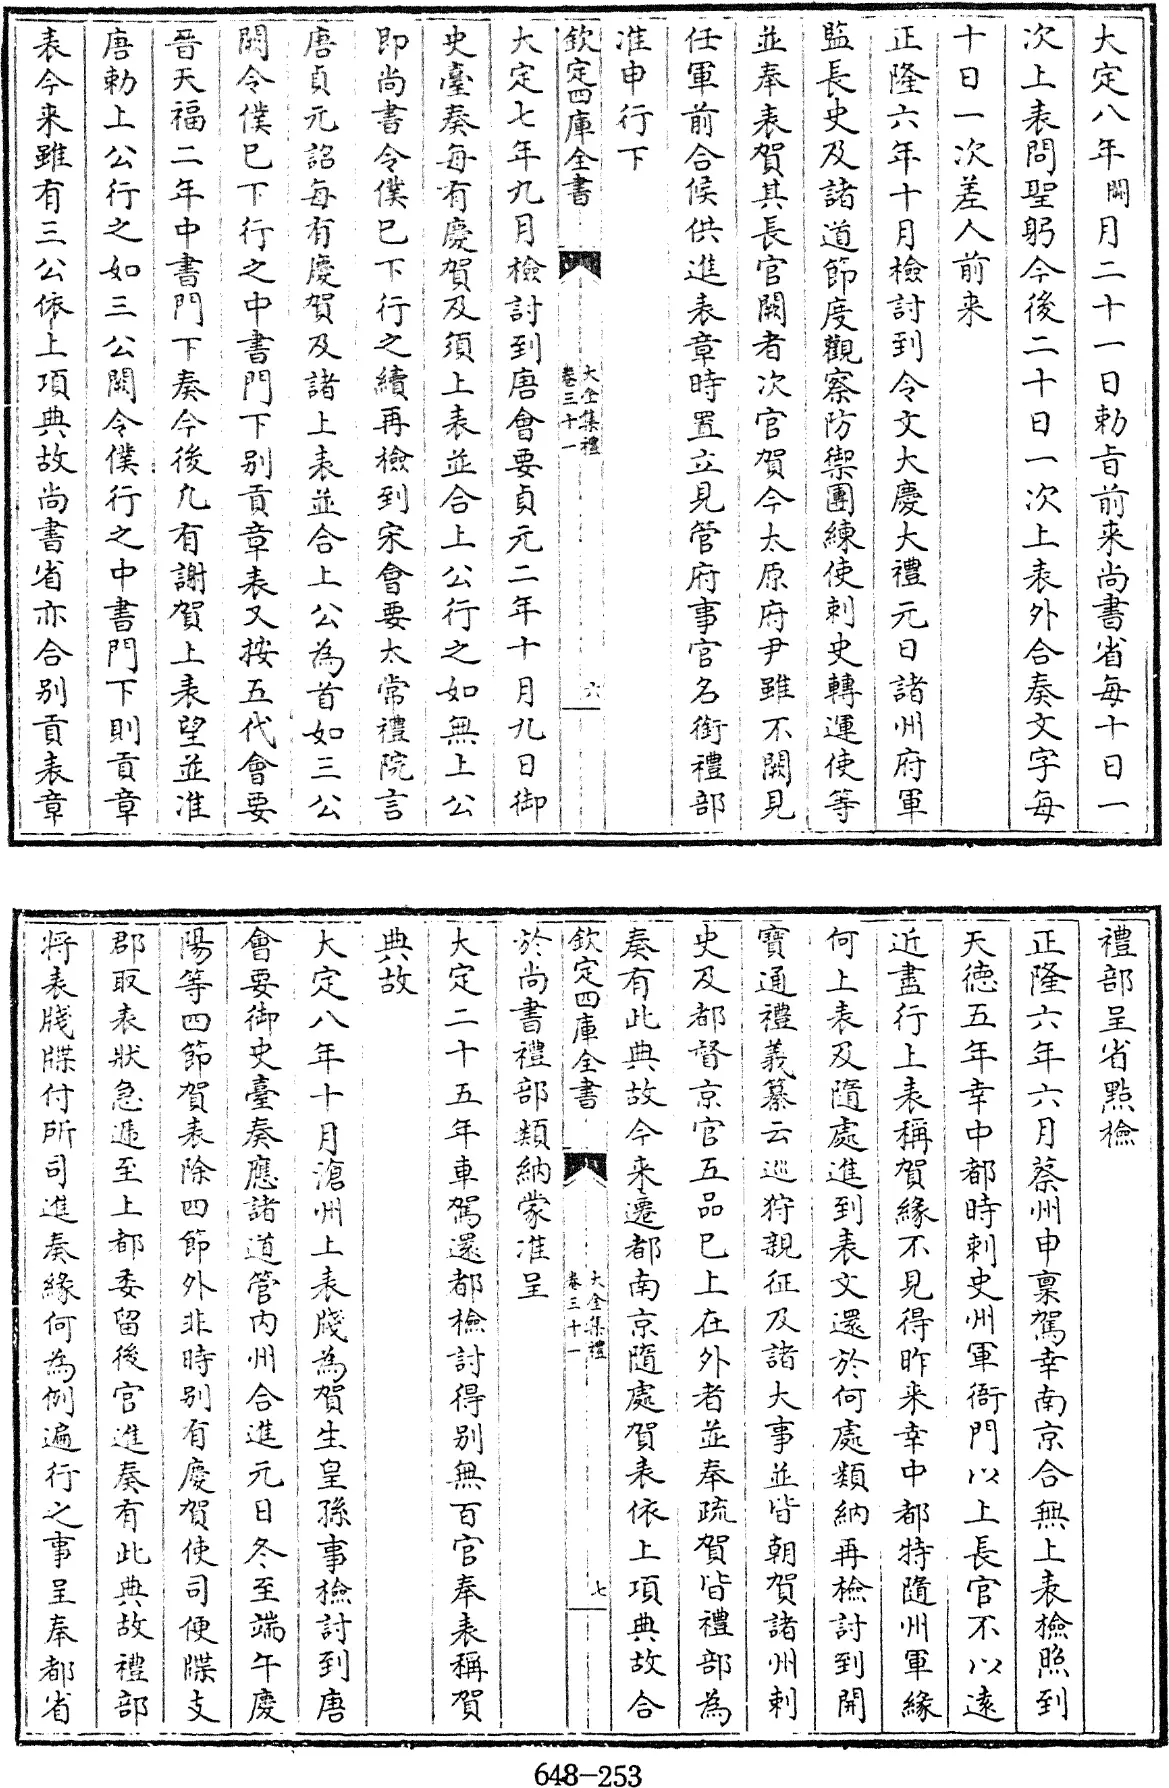 大定八年閏月二十一日勅旨前来尚書省每十日一
次上表問聖躬今後二十日一次上表外合奏文字每
十日一次差人前来
正隆六年十月檢討到令文大慶大禮元日諸州府軍
監長史及諸道節度觀察防禦團練使刺史轉運使等
並奉表賀其長官闕者次官賀今太原府尹雖不闕見
任軍前合候供進表章時置立見管府事官名銜禮部
准申行下
欽定四庫全書
大金集禮
卷三十一
六
大定七年九月檢討到唐會要貞元二年十月九日御
史臺奏每有慶賀及須上表並合上公行之如無上公
即尚書令僕已下行之續再檢到宋會要太常禮院言
唐貞元詔每有慶賀及諸上表並合上公為首如三公
闕令僕已下行之中書門下别貢章表又按五代會要
晉天福二年中書門下奏今後凡有謝賀上表望並准
唐勅上公行之如三公闕令僕行之中書門下則貢章
表今来雖有三公依上項典故尚書省亦合别貢表章
禮部呈省點檢
正隆六年六月蔡州申稟駕幸南京合無上表檢照到
天德五年幸中都時刺史州軍衙門以上長官不以遠
近盡行上表稱賀緣不見得昨来幸中都特隨州軍緣
何上表及隨處進到表文還於何處類納再檢討到開
寶通禮義纂云巡狩親征及諸大事並皆朝賀諸州刺
史及都督京官五品已上在外者並奉疏賀皆禮部為
奏有此典故今来遷都南京隨處賀表依上項典故合
欽定四庫全書
大金集禮
卷三十一
七
於尚書禮部類納蒙准呈
大定二十五年車駕還都檢討得别無百官奉表稱賀
典故
大定八年十月滄州上表牋為賀生皇孫事檢討到唐
會要御史臺奏應諸道管内州合進元日冬至端午慶
陽等四節賀表除四節外非時别有慶賀使司便牒支
郡取表狀急遞至上都委留後官進奏有此典故禮部
将表牋牒付所司進奏緣何為例遍行之事呈奉都省
648—253